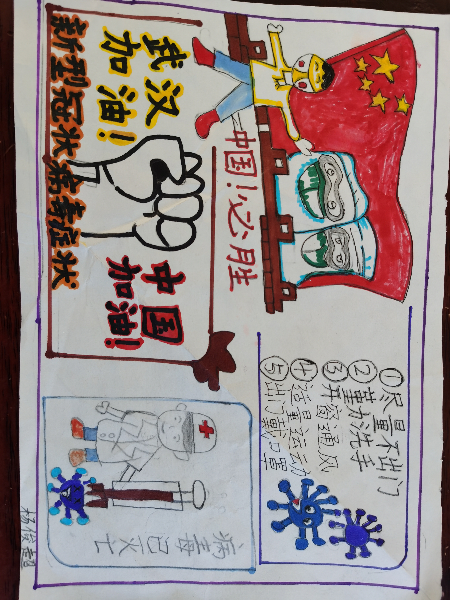 武汉
加油！
新型冠状病毒症状
中国
加油！
中国！必胜
①尽量不出门
②勤洗手
③开窗通风
④适量运动
⑤出门戴口罩
病毒已灭亡
杨俊超